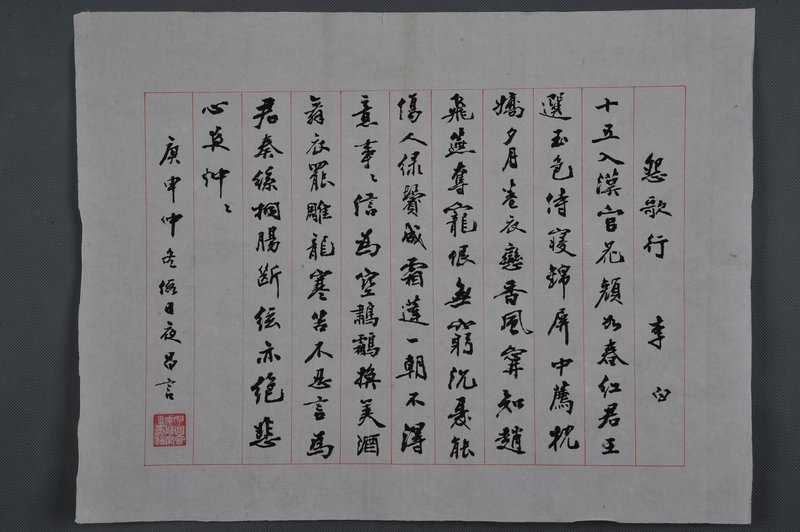 怨歌行 李白
十五入漢宮花顏如春紅君王
選玉色侍寢錦屏中薦枕
嬌夕月卷衣戀香風寧知趙
飛燕奪寵恨無窮沉憂能
傷人綠鬢成霜蓬一朝不得
意事〻信為空鷫鸘換美酒
舞衣罷雕龍寒苦不忍言為
君奏絲桐腸斷弦亦絕悲
心夜忡〻
庚申仲冬假日夜昌言